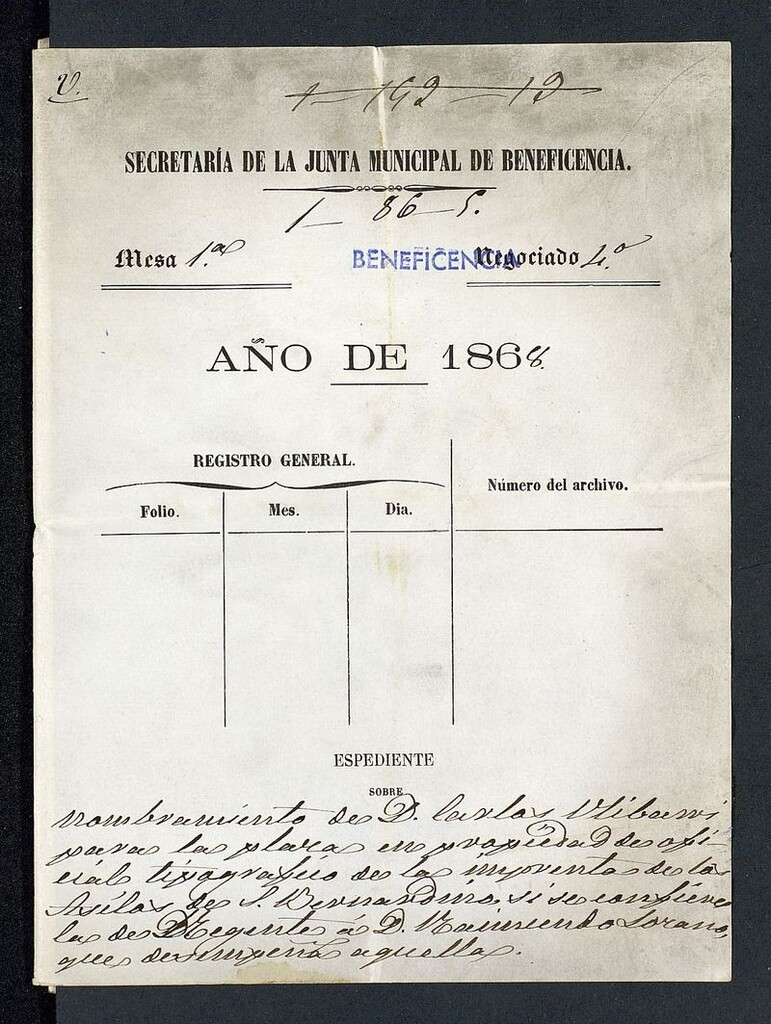 V.
1 - 192 - 12
SECRETARÍA DE LA JUNTA MUNICIPAL DE BENEFICENCIA.
1 - 86 - 5.
Mesa 1.ª BENEFICENCIA Negociado 4.º
AÑO DE 1868.
REGISTRO GENERAL.
Número del archivo.
Folio. Mes. Dia.
ESPEDIENTE
SOBRE
nombramiento de D. Carlos Ulibarri
para la plaza en propiedad de ofi-
cial tipografico de la imprenta de los
Asilos de S. Bernardino, si se confiere
la de Regente á D. Raimundo Lozano,
que desempeña aquella.